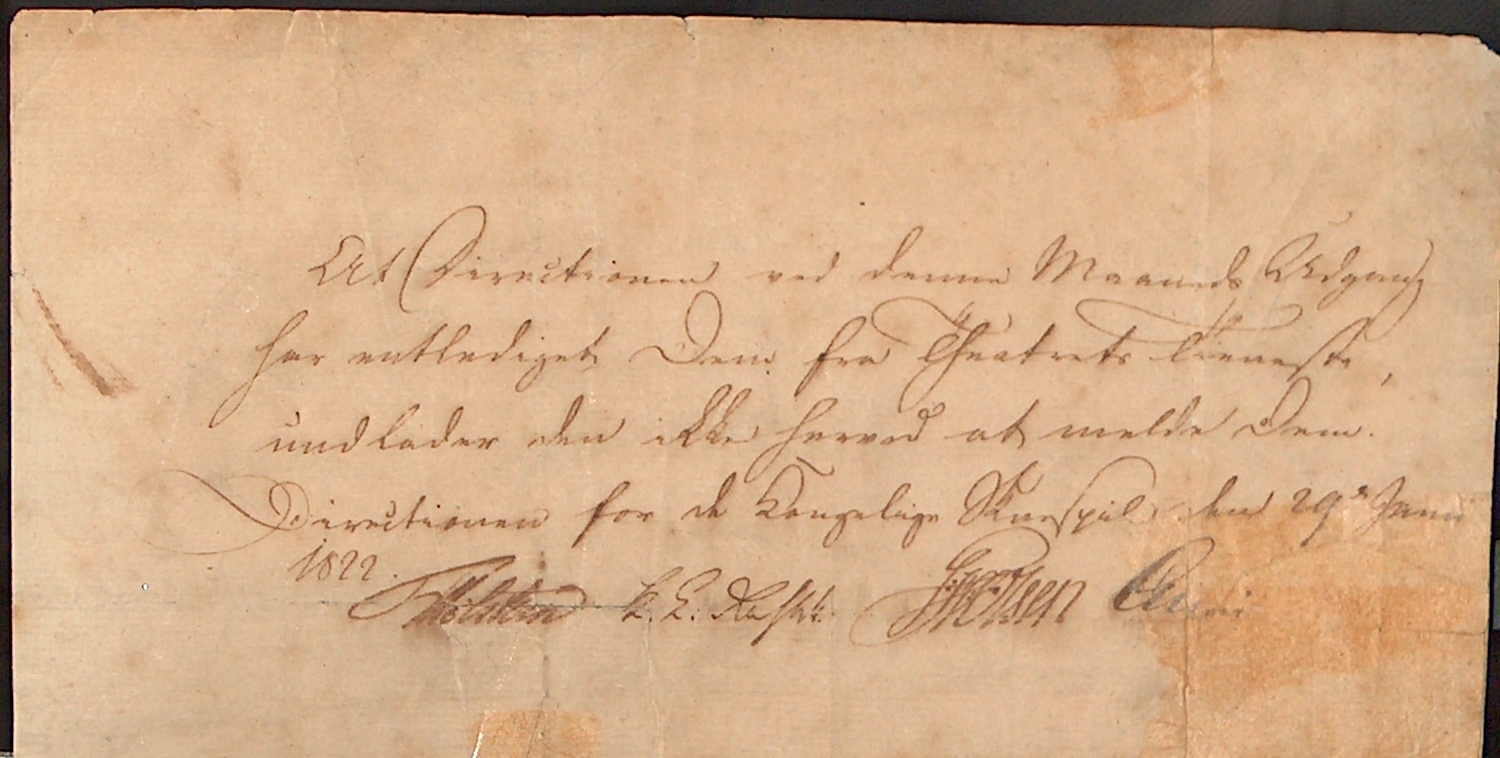 At Directionen ved denne Maaneds Udgang
har entlediget Dem fra Theatrets Tieneste,
undlader den ikke herved at melde Dem.
Directionen for de Kongelige Skuespil den 29de Junii
1822.
Holstein K. L. Rahbek. GHOlsen Kierulf